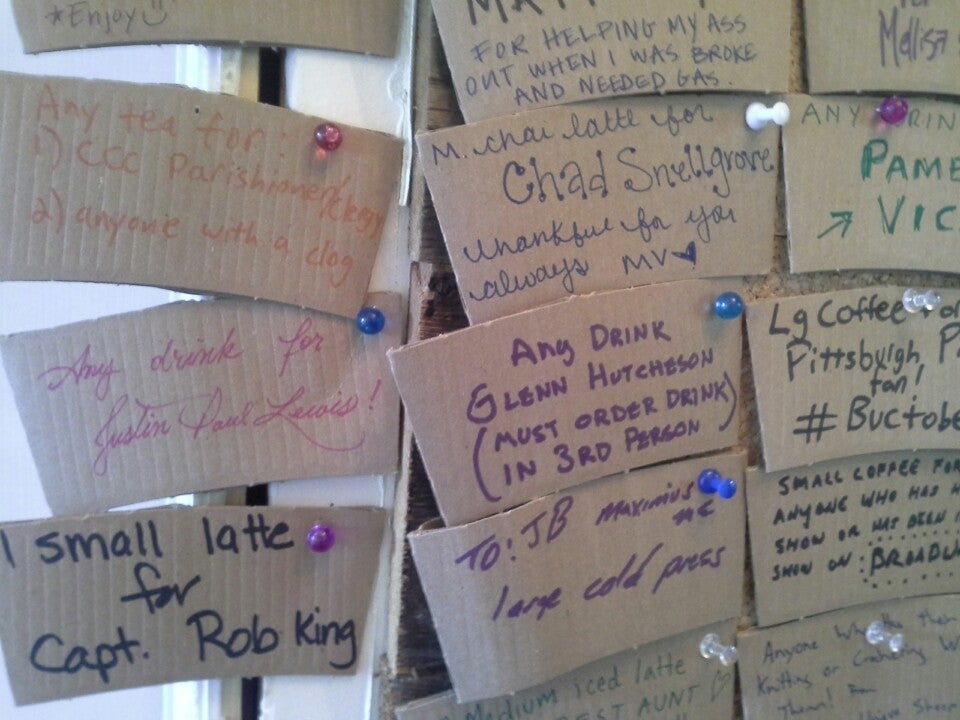 *Enjoy
Any tea for:
1) CCC Parishioner/clergy
2) anyone with a clog
Any drink for
Justin Paul Lewis!
1 small latte
for
Capt. Rob King
FOR HELPING MY ASS
OUT WHEN I WAS BROKE
AND NEEDED GAS.
M. chai latte for
Chad Snellgrove
thankful for you
always MV
Any DRINK
GLENN HUTCHESON
(MUST ORDER DRINK
IN 3RD PERSON)
TO: JB maximus
large cold press
Medium iced latte
BEST AUNT
Mellisa
ANY
PAME
→ VIC
Lg Coffee for
Pittsburgh P
fan!
# Buctobe
SMALL COFFEE FOR
ANYONE WHO HAS
SHOW OR HAS BEEN
SHOW ON: BROADW
Anyone Who
Knitting or
Them!